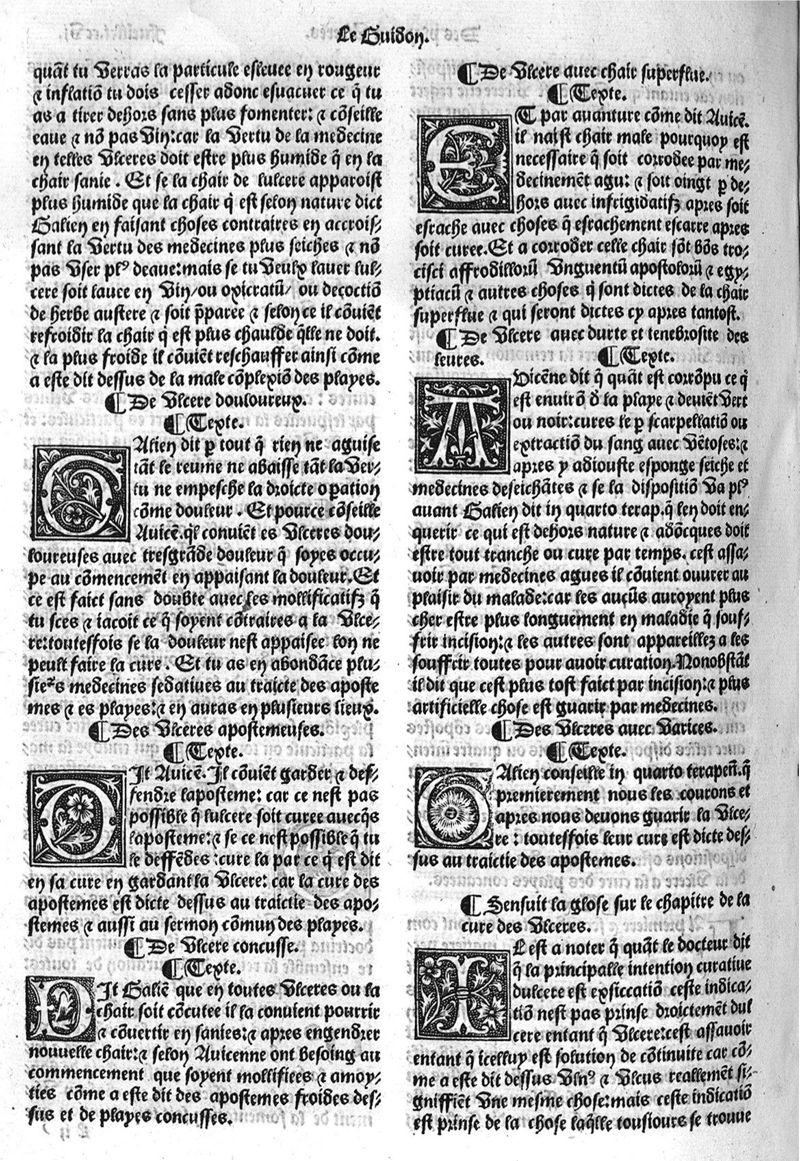 Le Guidon.
quãt tu Verras la particule esleuee en rougeur
⁊ inflatiõ tu dois cesser adonc esuacuer ce q̃ tu
as a tirer dehors sans plus fomenter: ⁊ cõseille
eaue ⁊ nõ pas Vin: car la Vertu de la medecine
en telles Vlceres doit estre plus humide q̃ en la
chair sanie. Et se la chair de lulcere apparoist
plus humide que la chair q̃ est selon nature dict
Galien en faisant choses contraires en accrois-
sant la Vertu des medecines plus seiches ⁊ nõ
pas Vser plꝰ deaue: mais se tu Veulx lauer lul-
cere soit laue en Vin/ou opicratũ/ou decoctiõ
de herbe austere ⁊ soit p̃paree ⁊ selon ce il cõuiẽt
refroidir la chair q̃ est plus chaulde q̃lle ne doit.
⁊ la plus froide il cõuiẽt reschauffer ainsi cõme
a este dit dessus de la male cõplexiõ des playes.
¶ De Vlcere douloureux.
¶ Texte.
GAlien dit p tout q̃ rien ne aguise
tãt le reume ne abaisse tãt la Ver-
tu ne empesche la droicte opation
cõme douleur. Et pource cõseille
Auicẽ. q̃l conuiẽt es Vlceres dou-
loureuses auec tresgrãde douleur q̃ soyes occu-
pe au cõmencemẽt en appaisant la douleur. Et
ce est faict sans doubte auec les mollificatifz q̃
tu sces ⁊ iacoit ce q̃ soyent cõtraires a la Vlce-
re: toutesfois se la douleur nest appaisee lon ne
peult faire la cure. Et tu as en abondãce plu-
sieᷣs medecines sedatiues au traicte des aposte
mes ⁊ es playes: ⁊ en auras en plusieurs lieux.
¶ Des Vlceres apostemeuses.
¶ Texte.
DIt Auicẽ. Il cõuiẽt garder ⁊ def-
fendre laposteme: car ce nest pas
possible q̃ lulcere soit curee auecq̃s
laposteme: ⁊ se ce nest possible q̃ tu
le deffẽdes: cure la par ce q̃ est dit
en sa cure en gardant la Vlcere: car la cure des
apostemes est dicte dessus au traictie des apo-
stemes ⁊ aussi au sermon cõmun des playes.
¶ De Vlcere concusse.
¶ Texte.
DIt Galiẽ que en toutes Vlceres ou la
chair soit cõcutee il la conuient pourrir
⁊ cõuertir en sanies: ⁊ apres engendrer
nouuelle chair: ⁊ selon Auicenne ont besoing au
commencement que soyent mollifiees ⁊ amoy-
ties cõme a este dit des apostemes froides des-
sus et de playes concusses.
¶ De Vlcere auec chair superflue.
¶ Texte.
ET par auanture cõme dit Auicẽ.
il naist chair male pourquoy est
necessaire q̃ soit corrodee par me-
decinemẽt agu: ⁊ soit oingt p de-
hors auec infrigidatifz apres soit
esrache auec choses q̃ esrachement escarre apres
soit curee. Et a corroder celle chair sõt bõs tro-
cisci affrodillorũ Vnguentũ apostolorũ ⁊ egy-
ptiacũ ⁊ autres choses q̃ sont dictes de la chair
superflue ⁊ qui seront dictes cy apres tantost.
¶ De Vlcere auec durte et tenebrosite des
leures. ¶ Texte.
AVicẽne dit q̃ quãt est corrõpu ce q̃
est enuirõ d̃ la playe ⁊ deuiẽt Vert
ou noir: cures le p scarpellatiõ ou
extractiõ du sang auec Vẽtoses: ⁊
apres y adiouste esponge seiche et
medecines deseichãtes ⁊ se la dispositiõ Va plꝰ
auant Galien dit in quarto terap. q̃ len doit en-
querir ce qui est dehors nature ⁊ adõcques doit
estre tout tranche ou cure par temps. cest assa-
uoir par medecines agues il cõuient ouurer au
plaisir du malade: car les aucũs auroyent plus
cher estre plus longuement en maladie q̃ souf-
frir incision: ⁊ les autres sont appareillez a les
souffrir toutes pour auoir curation. Nonobstãt
il dit que cest plus tost faict par incision: ⁊ plus
artificielle chose est guarir par medecines.
¶ Des Vlceres auec Varices.
¶ Texte.
GAlien conseille in quarto terapeñ. q̃
premierement nous les curons et
apres nous deuons guarir la Vlce-
re: toutesfois leur cure est dicte des-
sus au traictie des apostemes.
¶ Sensuit la glose sur le chapitre de la
cure des Vlceres.
IL est a noter q̃ quãt le docteur dit
q̃ la principalle intention curatiue
dulcere est exsiccatiõ ceste indica-
tiõ nest pas prinse droictemẽt dul
cere entant q̃ Vlcere: cest assauoir
entant q̃ icelluy est solution de cõtinuite car cõ-
me a este dit dessus Vlnꝰ ⁊ Vlcus reallemẽt si-
gniffiẽt Vne mesme chose: mais ceste indicatiõ
est prinse de la chose laq̃lle tousiours se trouue